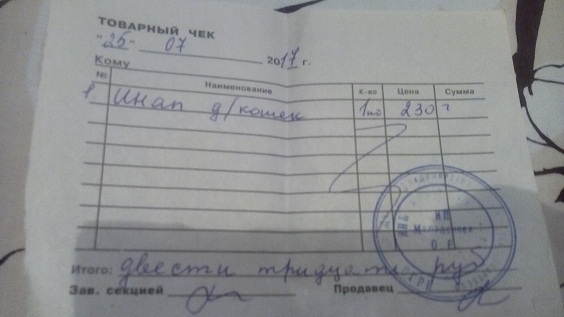 ТОВАРНЫЙ ЧЕК
"25" 07 2017 г.
Кому
№ Наименование К-во Цена Сумма
1. Инап д/кошек 1шт 230 г
Итого: двести тридцать руб
Зав. секцией Продавец
ИП